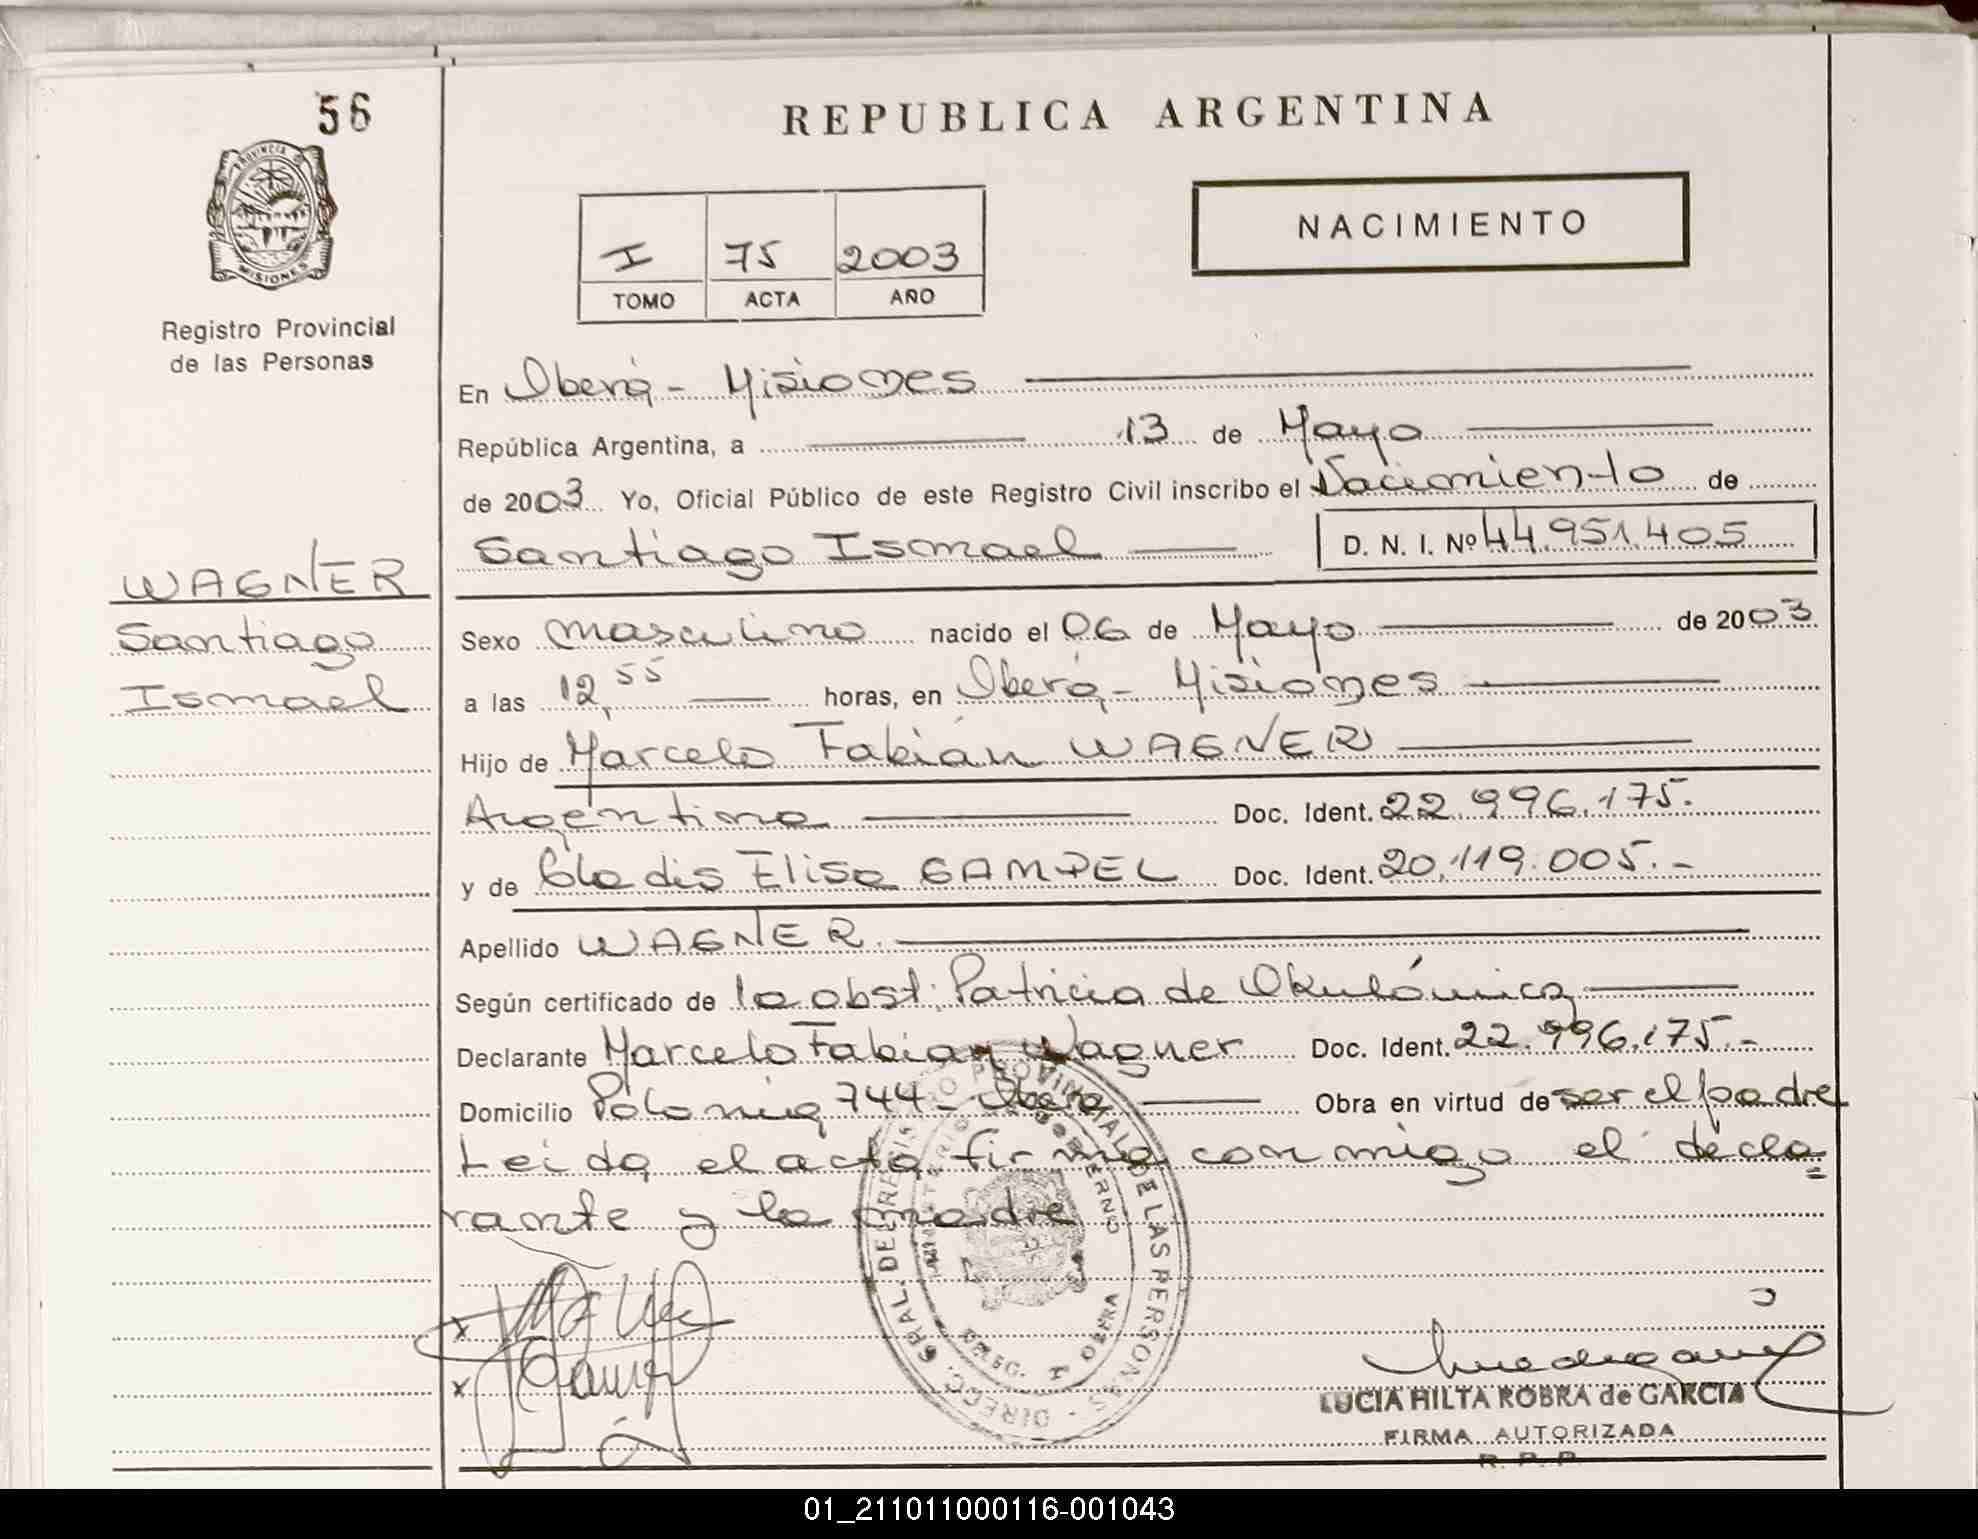 56
PROVINCIA DE
MISIONES
Registro Provincial
de las Personas
WAGNER
Santiago
Ismael
REPUBLICA ARGENTINA
I 75 2003
TOMO ACTA AÑO
NACIMIENTO
En Oberá - Misiones
República Argentina, a 13 de Mayo
de 2003 Yo, Oficial Público de este Registro Civil inscribo el Nacimiento de
Santiago Ismael D. N. I. Nº 44.951.405
Sexo masculino nacido el 06 de Mayo de 2003
a las 12,55 horas, en Oberá - Misiones
Hijo de Marcelo Fabián WAGNER
Argentino Doc. Ident. 22.996.175.
y de Gladis Elisa GAMPEL Doc. Ident. 20.119.005.-
Apellido WAGNER.
Según certificado de la obst. Patricia de
Declarante Marcelo Fabian Wagner Doc. Ident. 22.996.175.-
Domicilio Polonia 744 - Oberá Obra en virtud de ser el padre
Leida el acta firma conmigo el decla=
rante y la madre
DIRECC. GRAL. DEL REGISTRO PROVINCIAL DE LAS PERSONAS
MINISTERIO GOBIERNO
DELEG. I OBERA
LUCIA HILTA ROBRA de GARCIA
FIRMA AUTORIZADA
R. P. P.
01_211011000116-001043